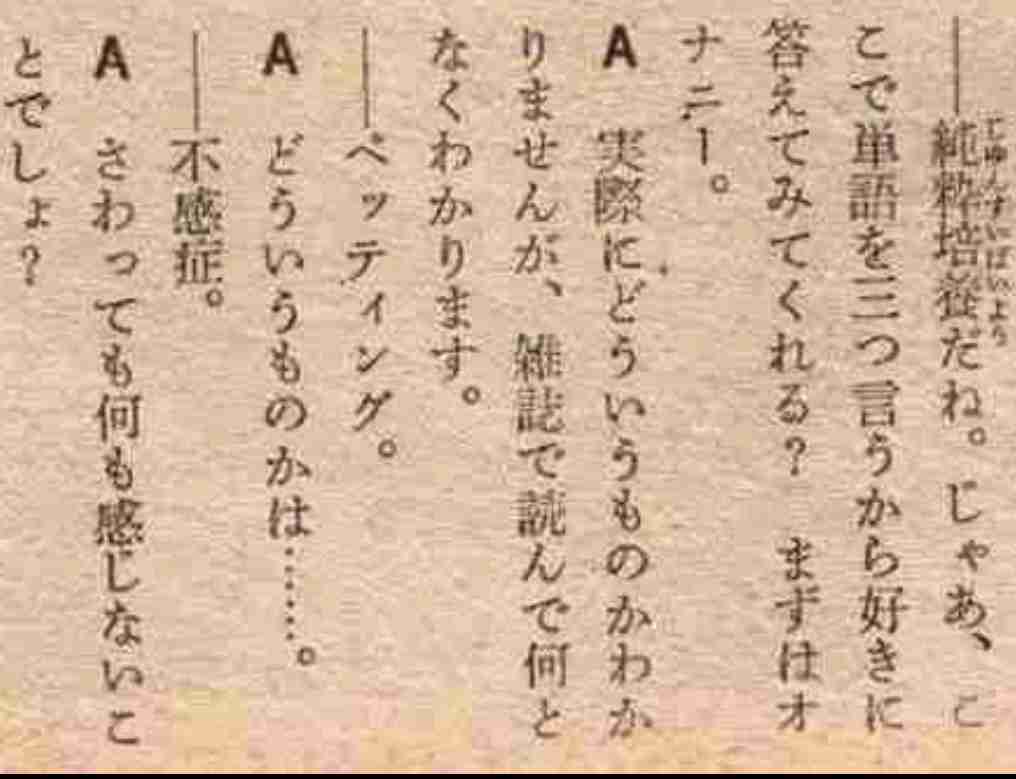 ――純粋培養だね。じゃあ、こ
こで単語を三つ言うから好きに
答えてみてくれる? まずはオ
ナニー。
A 実際にどういうものかわか
りませんが、雑誌で読んで何と
なくわかります。
――ペッティング。
A どういうものかは……。
――不感症。
A さわっても何も感じないこ
とでしょ?